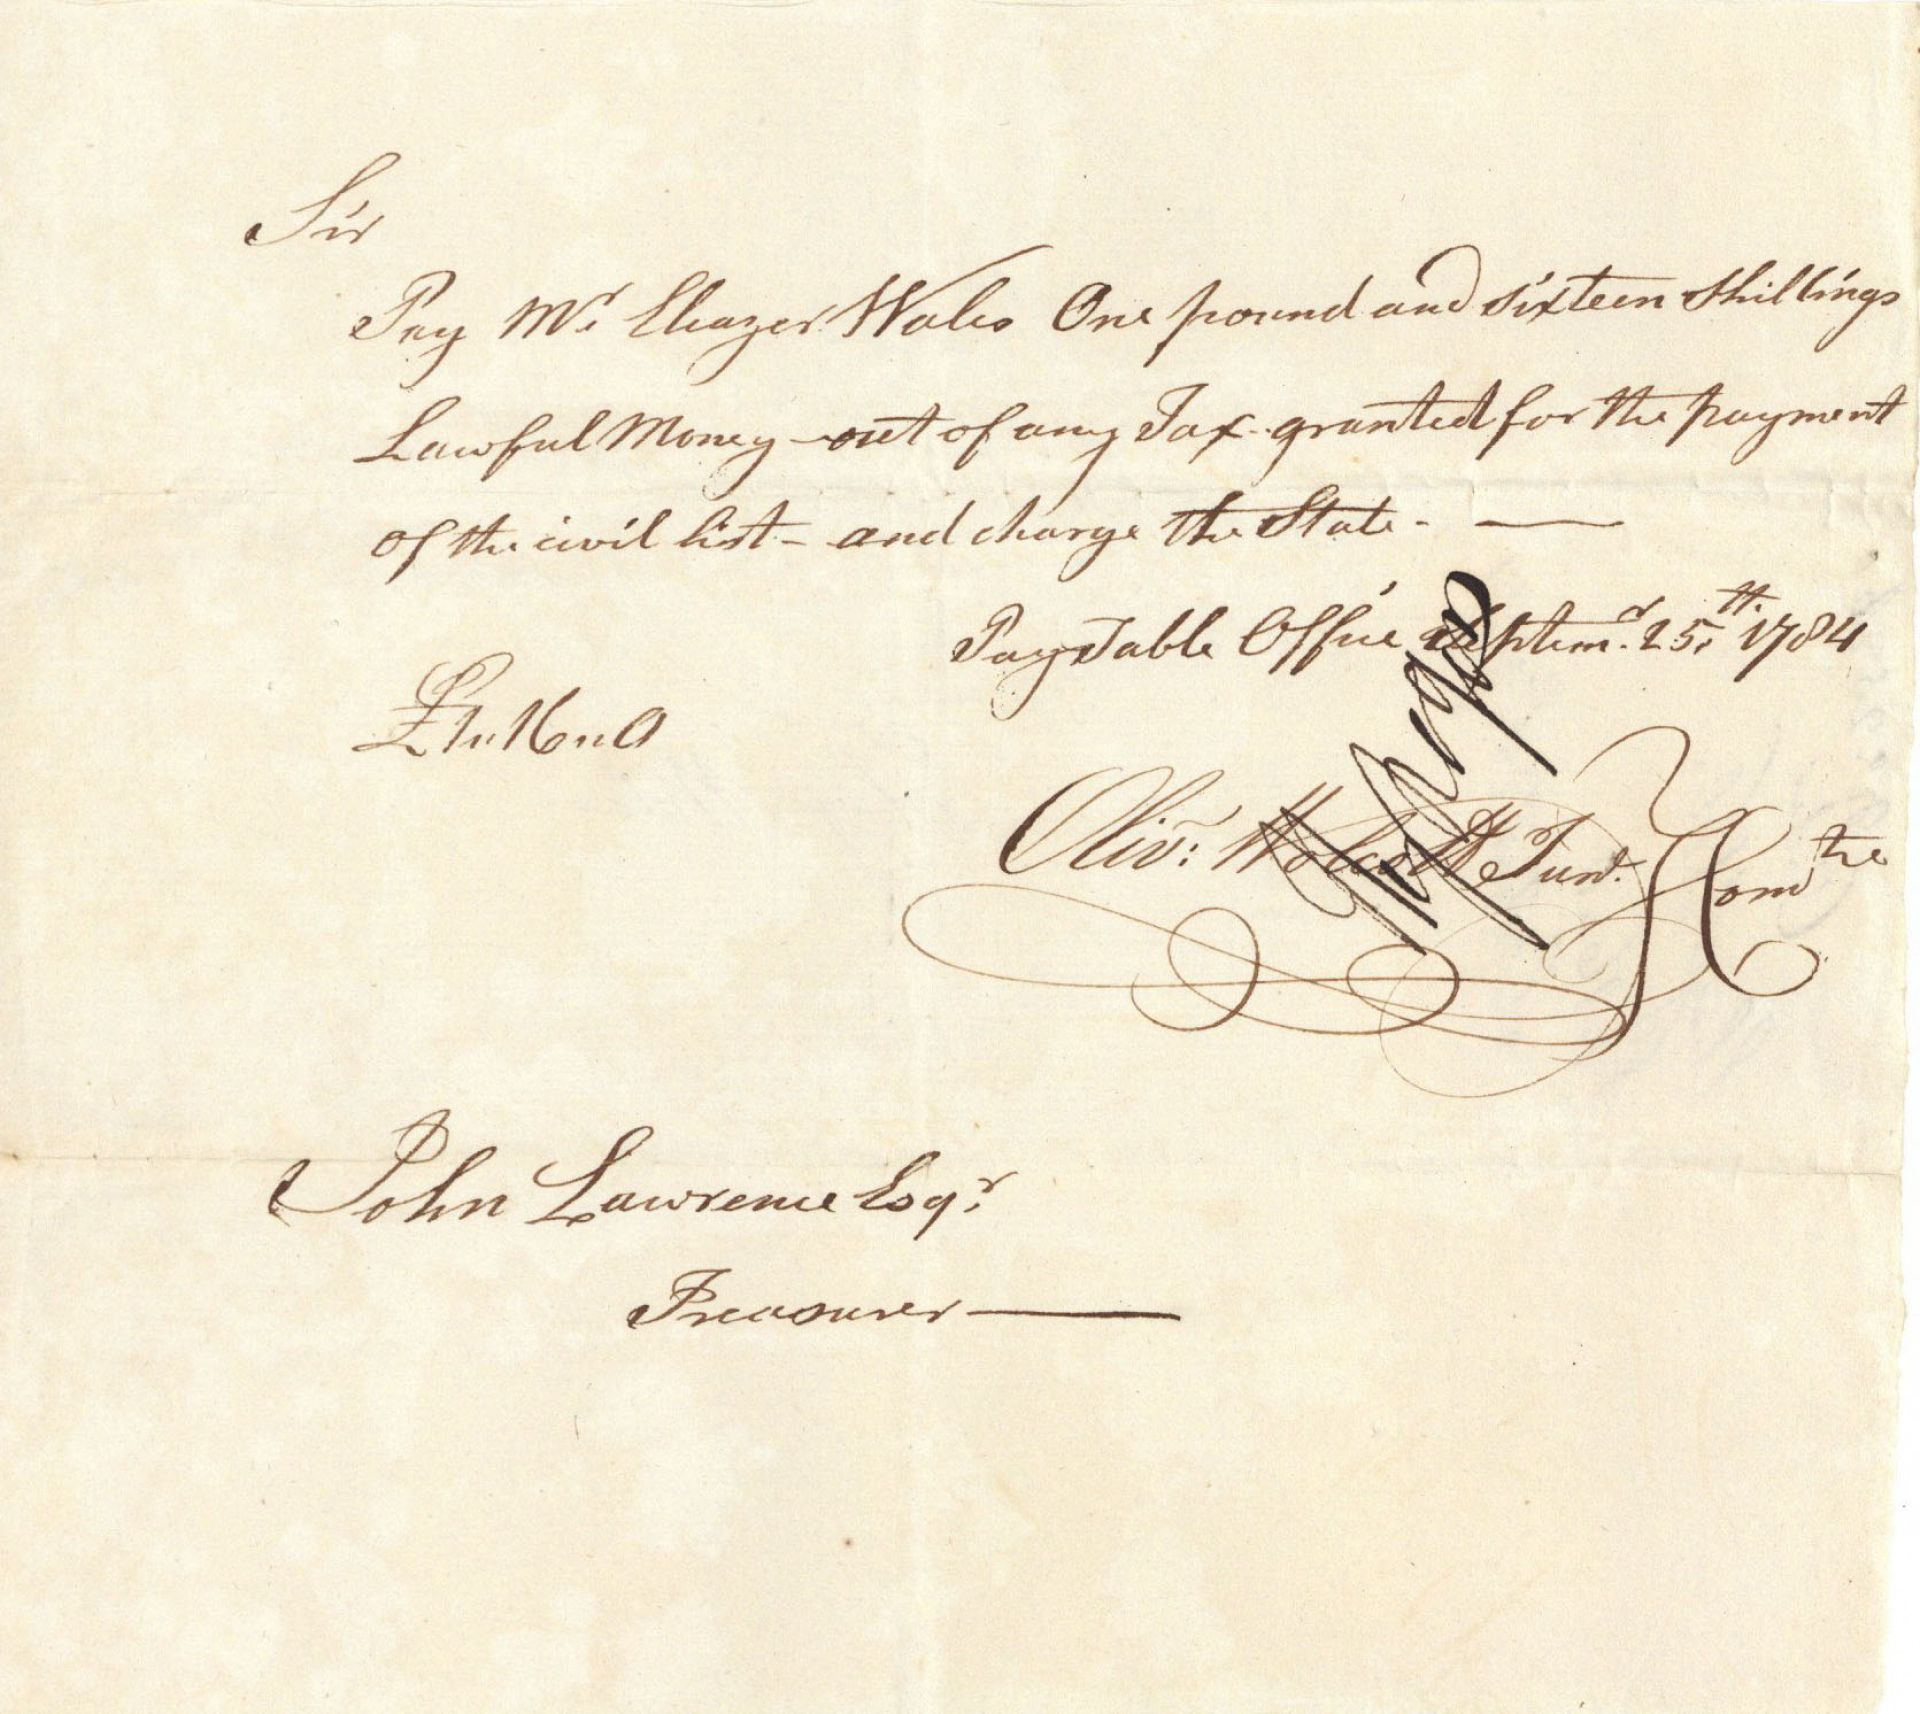 Sir
Pay Mr. Eleazer Wales One pound and sixteen shillings
Lawful Money - out of any Tax granted for the payment
of the civil list - and charge the State - —
Pay Table Office Septemr. 25th. 1784
£1 " 16 " 0
Oliv: Wolcott Junr. Comtee
John Lawrence Esqr.
Treasurer —